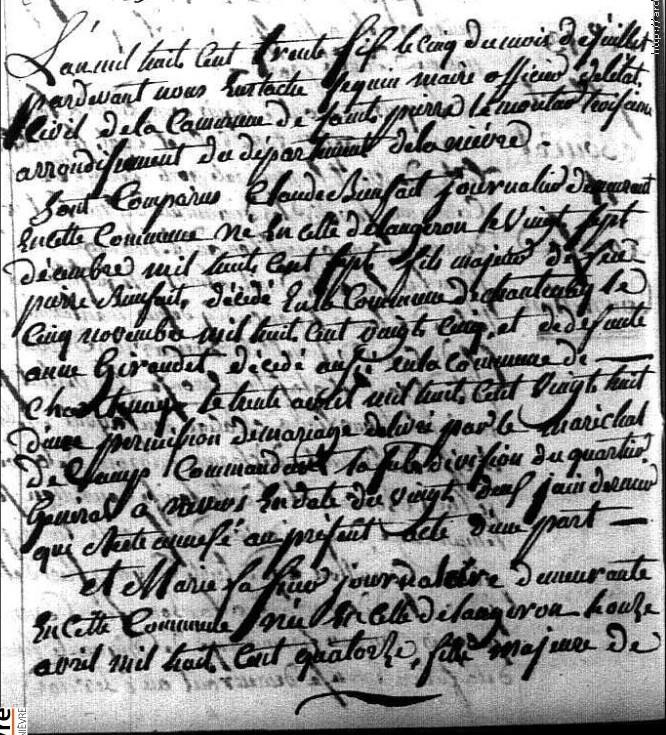 L'an mil huit cent trente six le cinq du mois de juillet
pardevant nous Eustache Seguin maire officier de l'état
Civil de la Commune de Saint pierre le moutier troisieme
arrondissement du département de la nièvre
Sont Comparus Claude Binfait journalier demeurant
En cette Commune né En celle de langeron le Vingt sept
décembre mil huit Cent sept fils majeur de feu
pierre Binfait, décédé En la Commune de chantenay le
Cinq novembre mil huit Cent vingt Cinq, et de défunte
anne Giraudet, décédé aussi en la commune de
Chantenay le trente mil huit Cent Vingt huit
d'une permission de mariage delivré par le maréchal
de Camp Commandant la subdivision du quartier
Général à nevers En date du vingt deux juin dernier
qui reste annexé au présent acte d'une part
Et Marie journaliere demeurante
En Cette Commune née En celle de langeron le onze
avril mil huit Cent quatorze, fille majeure de
vre
NIÈVRE